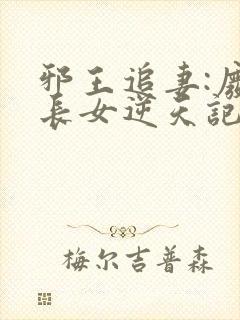 邪王追妻:廢
長女逆天記
梅尔吉普森